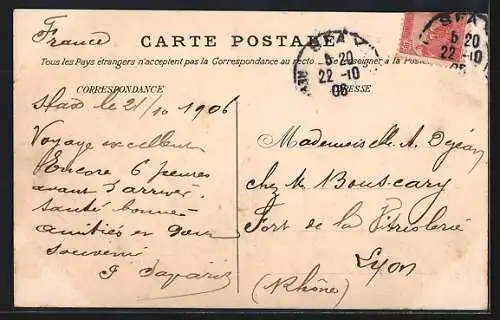 France
CARTE POSTALE
Tous les Pays étrangers n'acceptent pas la Correspondance au recto. Se renseigner à la Poste
CORRESPONDANCE
ADRESSE
SFAX
5 20
22 -10
06
SFAX
5 20
22 -10
06
Sfax le 21/10 1906
Voyage excellent
Encore 6 heures
avant d'arriver.
Santé bonne
amitiés et doux
souvenir
Mademoiselle A. Dejean
chez M. Bouscary
Fort de la Vitriolerie
Lyon
(Rhône)